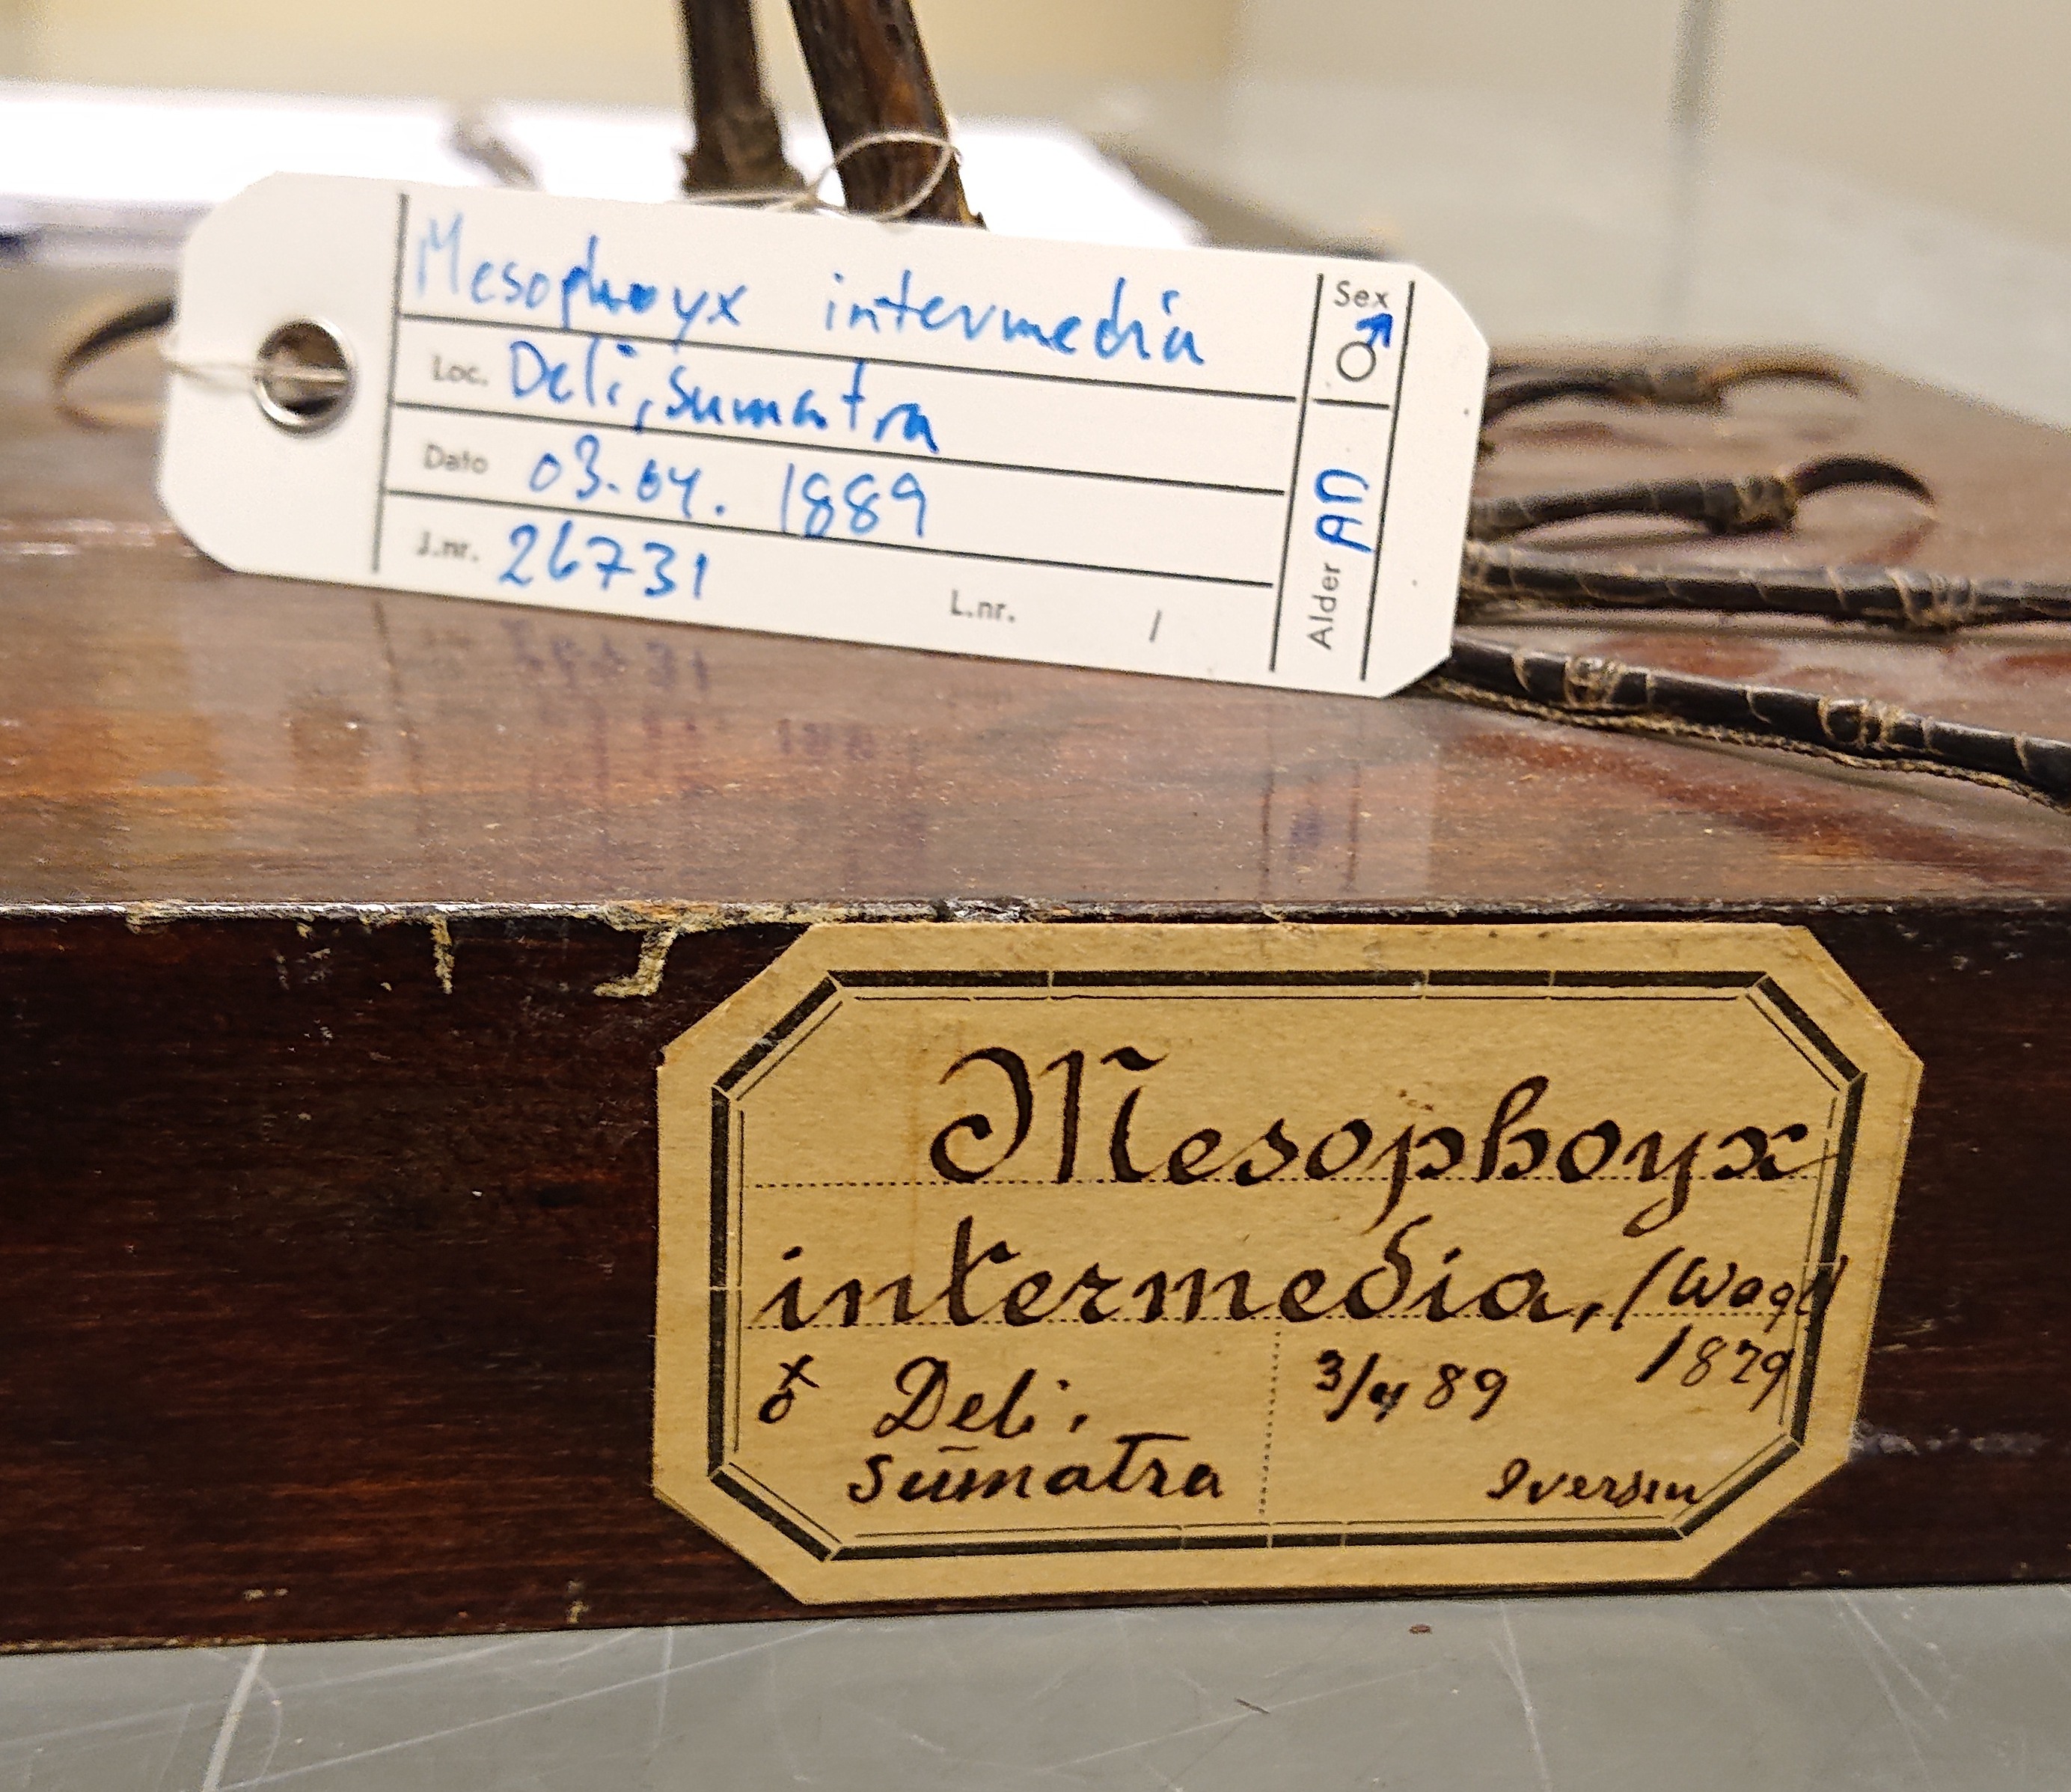 Mesophoyx intermedia
Sex ♂
Loc. Deli, Sumatra
Dato 03.04.1889
J.nr. 26731 L.nr. /
Alder AD
Mesophoyx
intermedia, (Wagl
1829
♂ Deli, 3/4 89
Sumatra Iversen